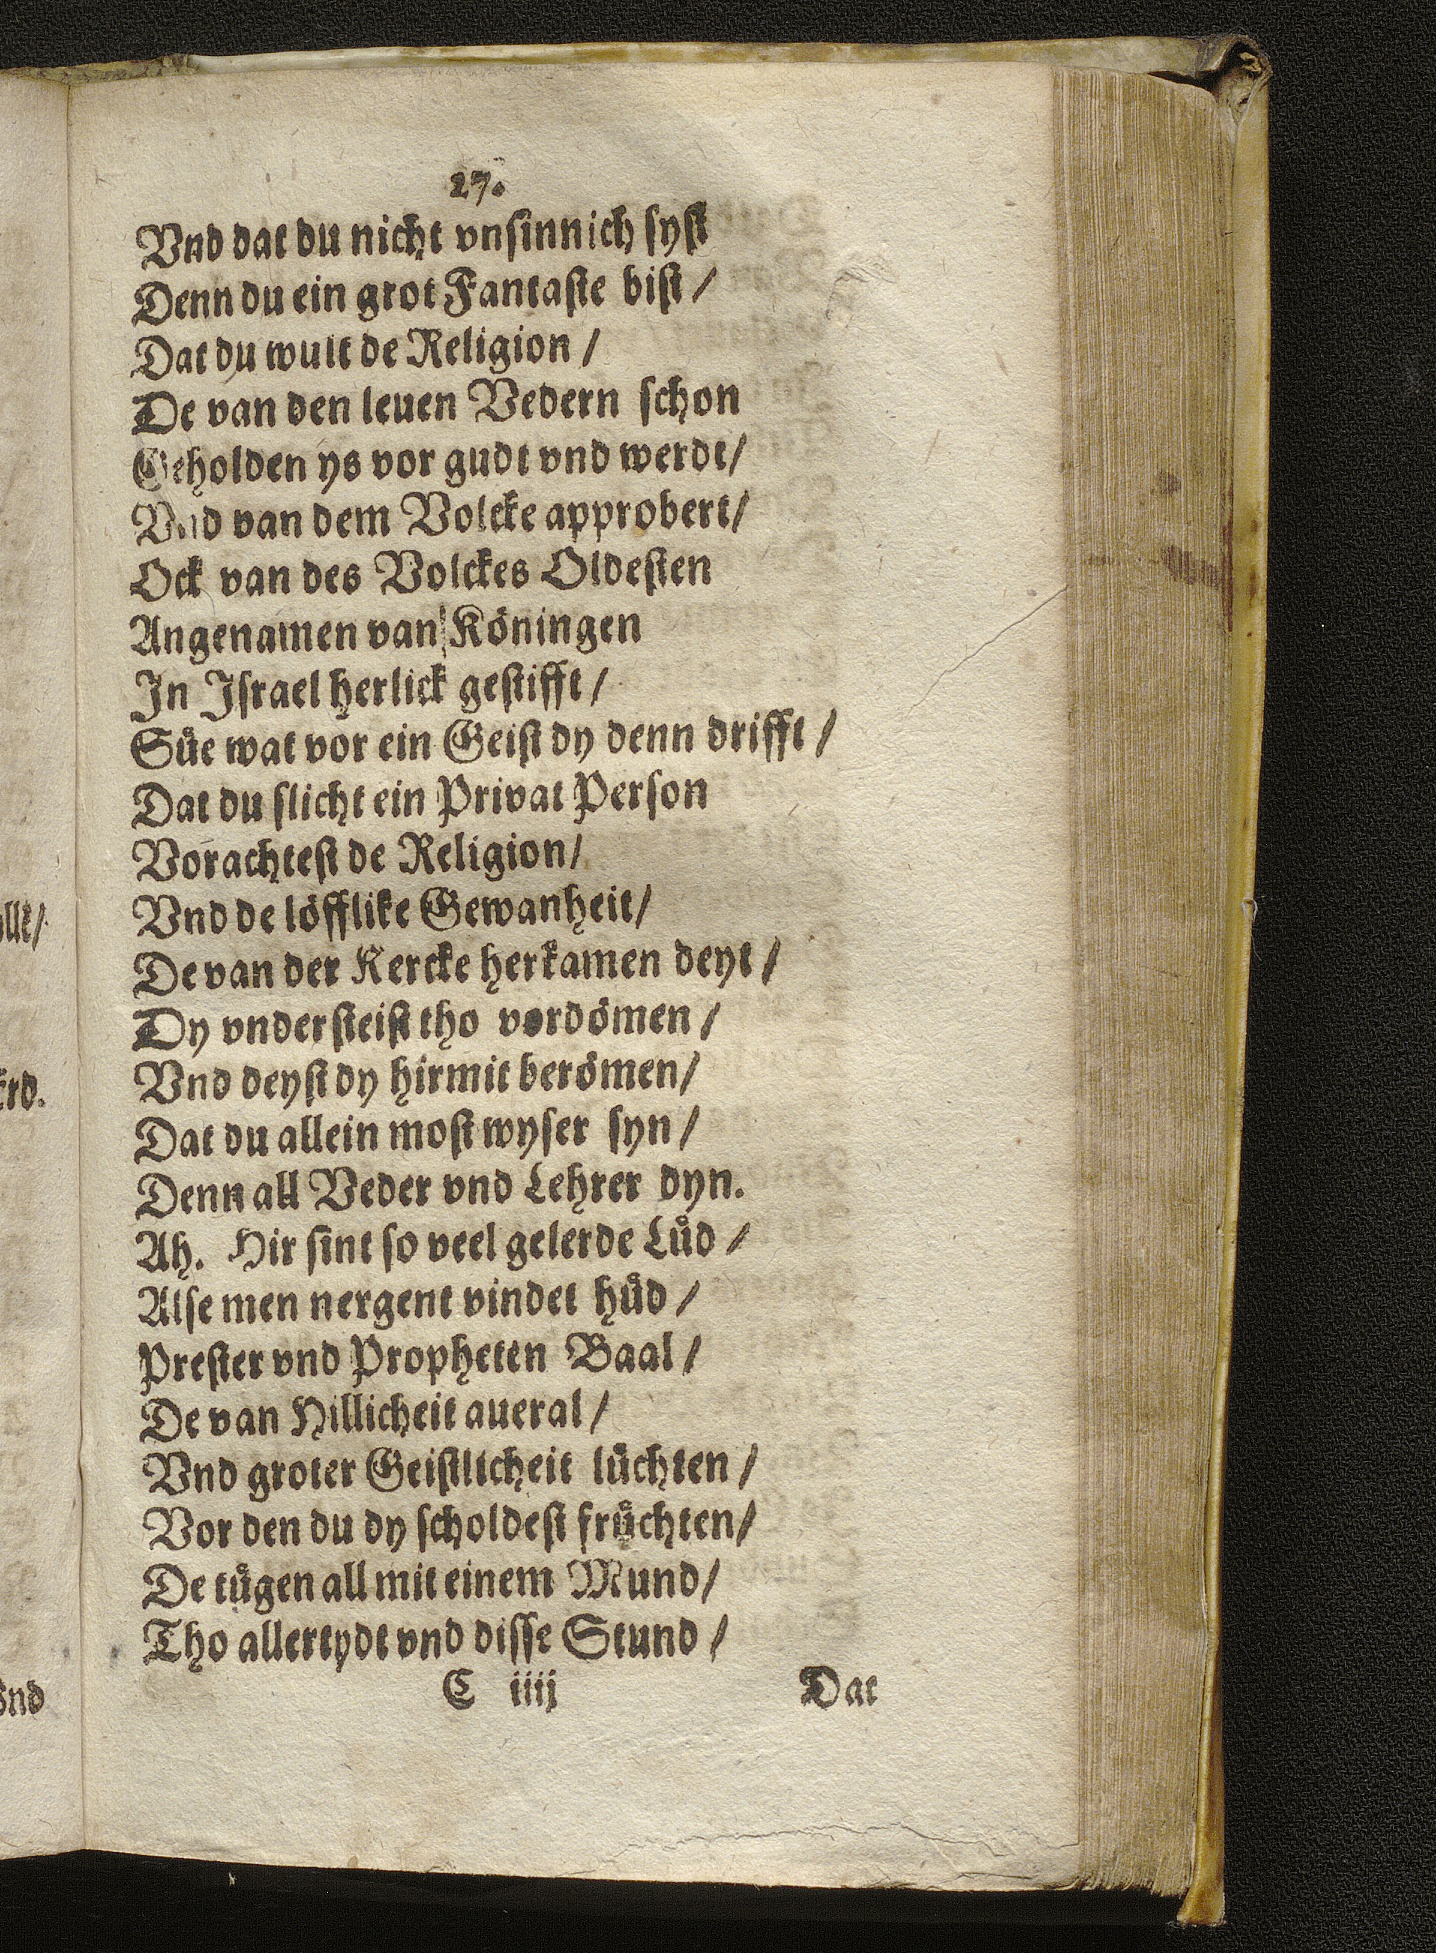 27.
Vnd dat du nicht vnſinnich ſyſt
Denn du ein grot Fantaſte biſt /
Dat du wult de Religion /
De van den leuen Vedern ſchon
Geholden ys vor gudt vnd werdt /
Vnd van dem Volcke approbert /
Ock van des Volckes Oldeſten
Angenamen van Köningen
In Iſrael herlick geſtifft /
Süe wat vor ein Geiſt dy denn drifft /
Dat du ſlicht ein Privat Perſon
Vorachteſt de Religion /
Vnd de löfflike Gewanheit /
De van der Kercke herkamen deyt /
Dy vnderſteiſt tho vordömen /
Vnd deyſt dy hirmit berömen /
Dat du allein moſt wyſer ſyn /
Denn all Veder vnd Lehrer dyn.
Ah. Hir ſint ſo veel gelerde Luͤd /
Alſe men nergent vindet huͤd /
Preſter vnd Propheten Baal /
De van Hillicheit aueral /
Vnd groter Geiſtlicheit luͤchten /
Vor den du dy ſcholdeſt fruͤchten /
De tuͤgen all mit einem Mund /
Tho allertydt vnd diſſe Stund /
C iiij Dat
llt /
rd.
Vnd